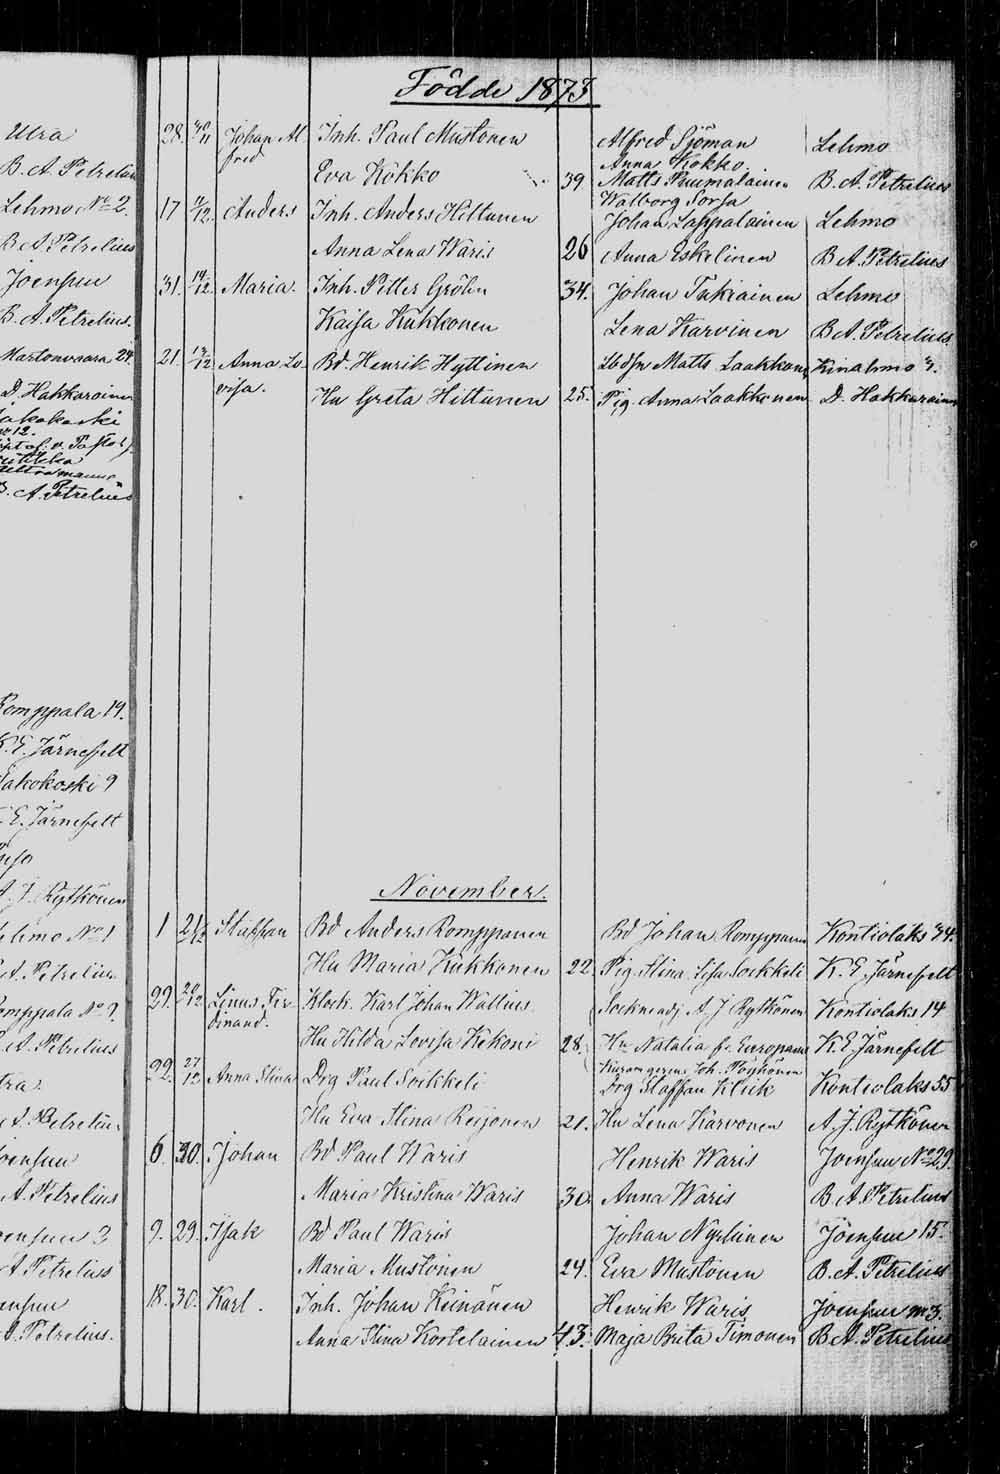 Födde 1873
Ura
B. A. Petrelius
Lehmo No 2.
B A Petrelius
Joensuu
B. A. Petrelius.
Martonvaara 24.
D. Hakkarainen
B. A. Petrelius
Romppala 19.
K. E. Järnefelt
Jakokoski 9
K. E. Järnefelt
A. J. Rytkönen
Lehmo No 1
A. Petrelius
Romppala No 9.
A. Petrelius
A. Petrelius
Joensuu
A. Petrelius
Joensuu 3
A Petrelius
Joensuu
A. Petrelius.
28. 30/11 Johan Al Inh. Paul Mustonen Alfred Sjöman Lehmo
fred Anna Kokko.
Eva Kokko 39 Matts Puumalainen B. A. Petrelius
Walborg Sorsa
17 /12. Anders Inh. Anders Hiltunen Johan Lappalainen Lehmo
Anna Lena Waris 26 Anna Eskelinen B A. Petrelius
31. 14/12. Maria. Inh. Petter Gröhn 34. Johan Turkiainen Lehmo
Kaisa Kukkonen Lena Karvinen B A. Petrelius.
21. /12 Anna Lo- Bd. Henrik Hyttinen Matts Laakkonen Kinahmo 3.
visa. Hu Greta Hiltunen 25. Pig. Anna Laakkonen D. Hakkarainen
November.
1 21/12 Staffan Bd Anders Romppanen Bd Johan Romppanen Kontiolaks 34.
Hu Maria Kukkonen 22 Pig Stina Lisa Soikkeli K. E. Järnefelt
29. 20/12 Linus Fer Klock. Karl Johan Wallius. Sockneadj. A. J Rytkönen Kontiolaks 14
dinand. Hu Hilda Lovisa Kekoni 28. Hu Natalia f. Europaeus K. E. Järnefelt
Joh. Pöyhönen
22. 27/12 Anna Stina Drg Paul Soikkeli Drg Staffan Kiiik Kontiolaks 55
Hu Eva Stina Reijonen 21. Hu Lena Karvonen A. J. Rytkönen
6. 30. Johan Bd Paul Waris Henrik Waris Joensuu No 29.
Maria Kristina Waris 30. Anna Waris B A Petrelius
9. 29. Isak Bd Paul Waris Johan Nyyliinen Joensuu 15.
Maria Mustonen 24. Eva Mustonen B. A. Petrelius
18. 30. Karl. Inh. Johan Keinänen Henrik Waris Joensuu no 3.
Anna Stina Kostelainen 43. Maja Brita Timonen B A. Petrelius